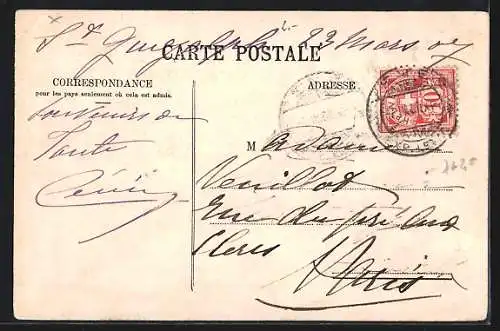 St Gingolph 23 Mars 07
CARTE POSTALE
CORRESPONDANCE
pour les pays seulement où cela est admis.
ADRESSE
Souvenirs de
Tante
M adame
Veuillot
Rue du pré aux
Clercs
Paris
10